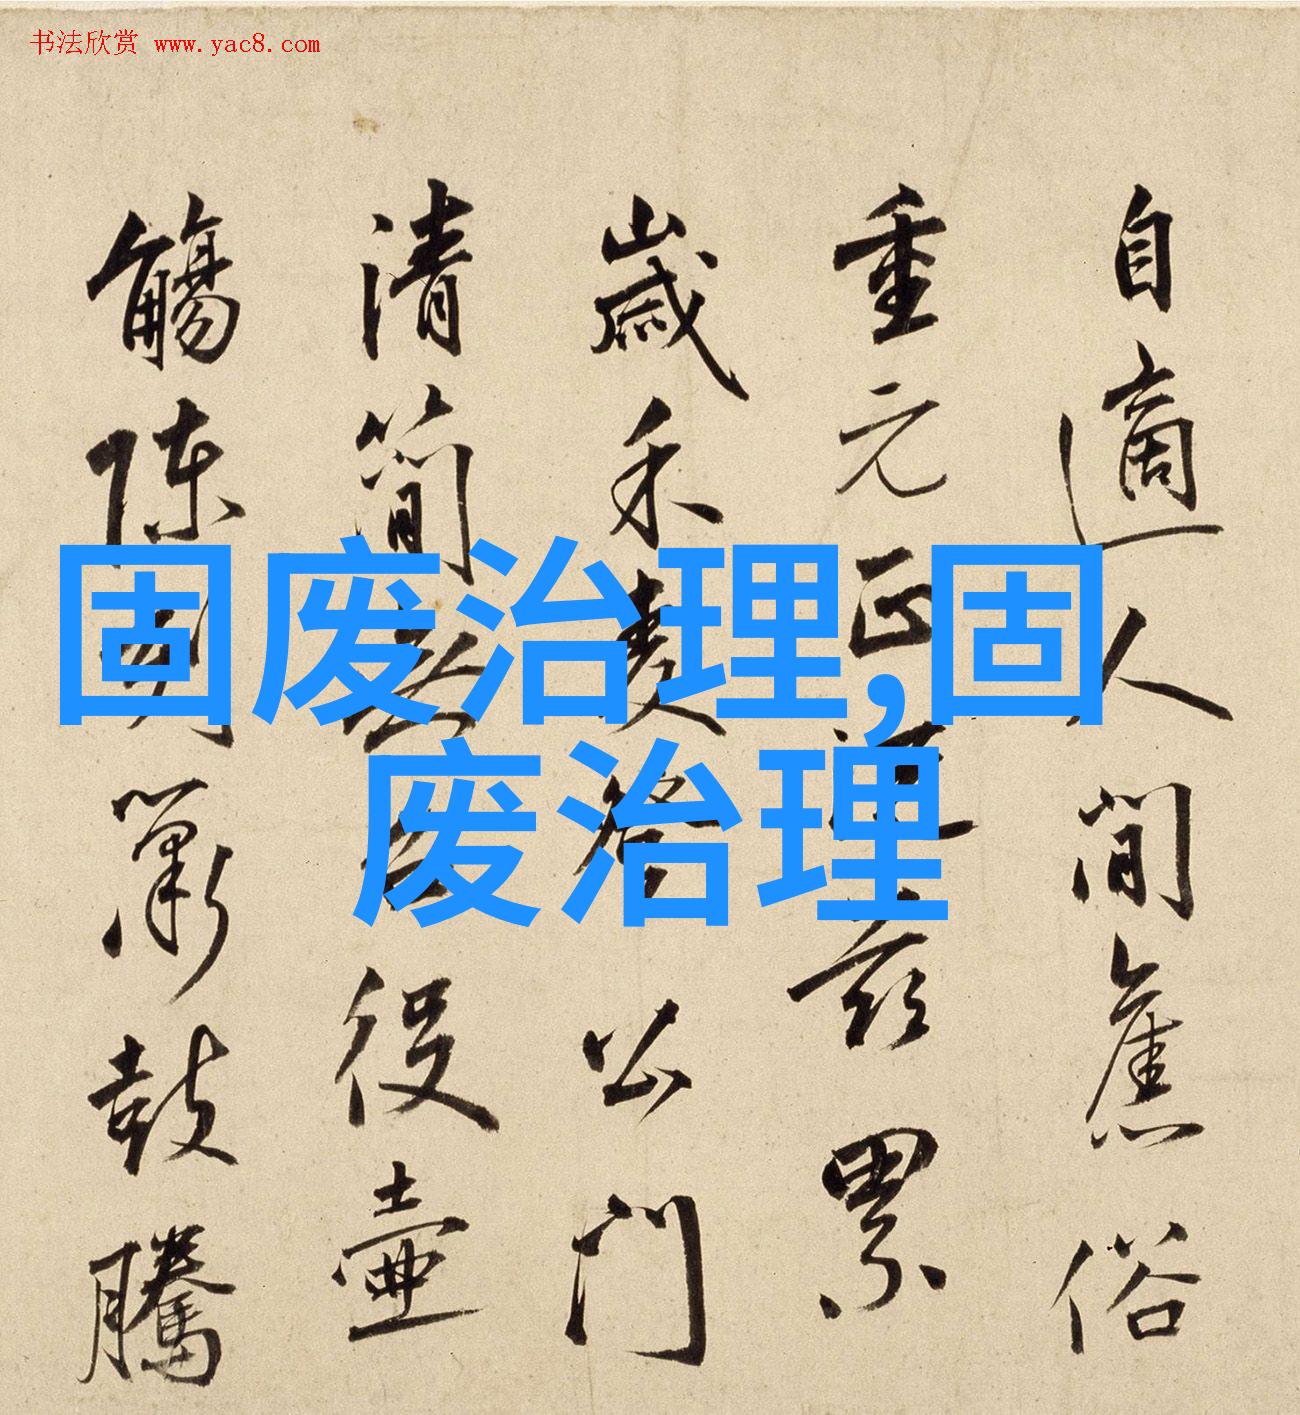 书法欣赏 www.yac8.com
自適人間俗
重元正茲累
歲禾公門
清簡役壺
觴陳簫鼓騰
固废治理,固
废治理